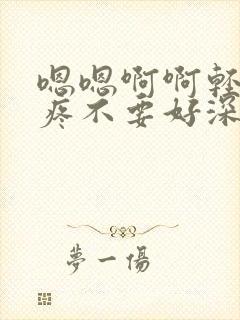 嗯嗯啊啊轻
疼不要好深
夢一傷